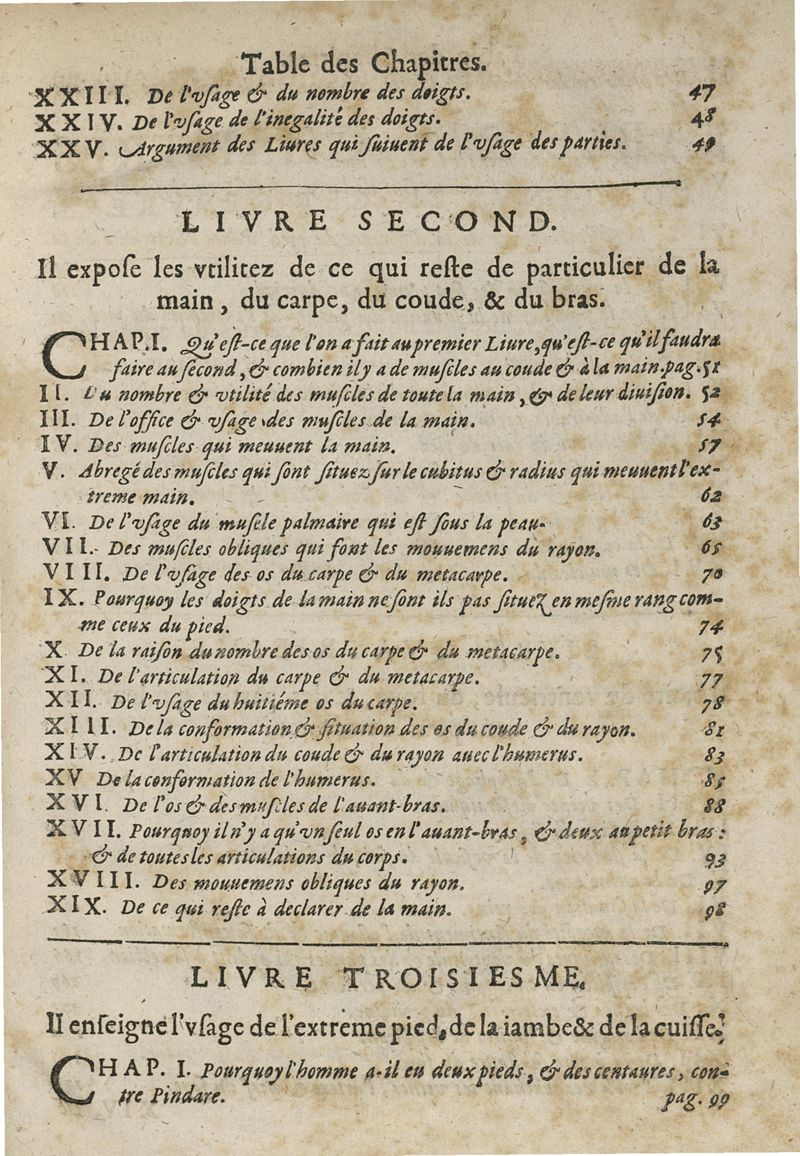 Table des Chapitres.
XXIII. De l'vſage & du nombre des doigts. 47
XXIV. De l'vſage de l'inegalité des doigts. 48
XXV. Argument des Liures qui ſuiuent de l'vſage des parties. 49
LIVRE SECOND.
Il expoſe les vtilitez de ce qui reſte de particulier de la
main, du carpe, du coude, & du bras.
CHAP. I. Qu'eſt-ce que l'on a fait au premier Liure, qu'eſt-ce qu'il faudra
faire au ſecond, & combien il y a de muſcles au coude & à la main. pag. 51
II. Du nombre & vtilité des muſcles de toute la main, & de leur diuiſion. 52
III. De l'office & vſage des muſcles de la main. 54
IV. Des muſcles qui meuuent la main. 57
V. Abregé des muſcles qui ſont ſituez ſur le cubitus & radius qui meuuent l'ex-
treme main. 62
VI. De l'vſage du muſcle palmaire qui eſt ſous la peau. 63
VII. Des muſcles obliques qui font les mouuemens du rayon. 65
VIII. De l'vſage des os du carpe & du metacarpe. 70
IX. Pourquoy les doigts de la main ne ſont ils pas ſituez en meſme rang com-
me ceux du pied. 74
X. De la raiſon du nombre des os du carpe & du metacarpe. 75
XI. De l'articulation du carpe & du metacarpe. 77
XII. De l'vſage du huitiéme os du carpe. 78
XIII. De la conformation & ſituation des os du coude & du rayon. 81
XIV. De l'articulation du coude & du rayon auec l'humerus. 83
XV De la conformation de l'humerus. 85
XVI. De l'os & des muſcles de l'auant-bras. 88
XVII. Pourquoy il n'y a qu'vn ſeul os en l'auant-bras, & deux au petit bras:
& de toutes les articulations du corps. 93
XVIII. Des mouuemens obliques du rayon. 97
XIX. De ce qui reſte à declarer de la main. 98
LIVRE TROISIESME.
Il enſeigne l'vſage de l'extreme pied, de la iambe & de la cuiſſe.
CHAP. I. Pourquoy l'homme a-il eu deux pieds, & des centaures, con-
tre Pindare. pag. 99